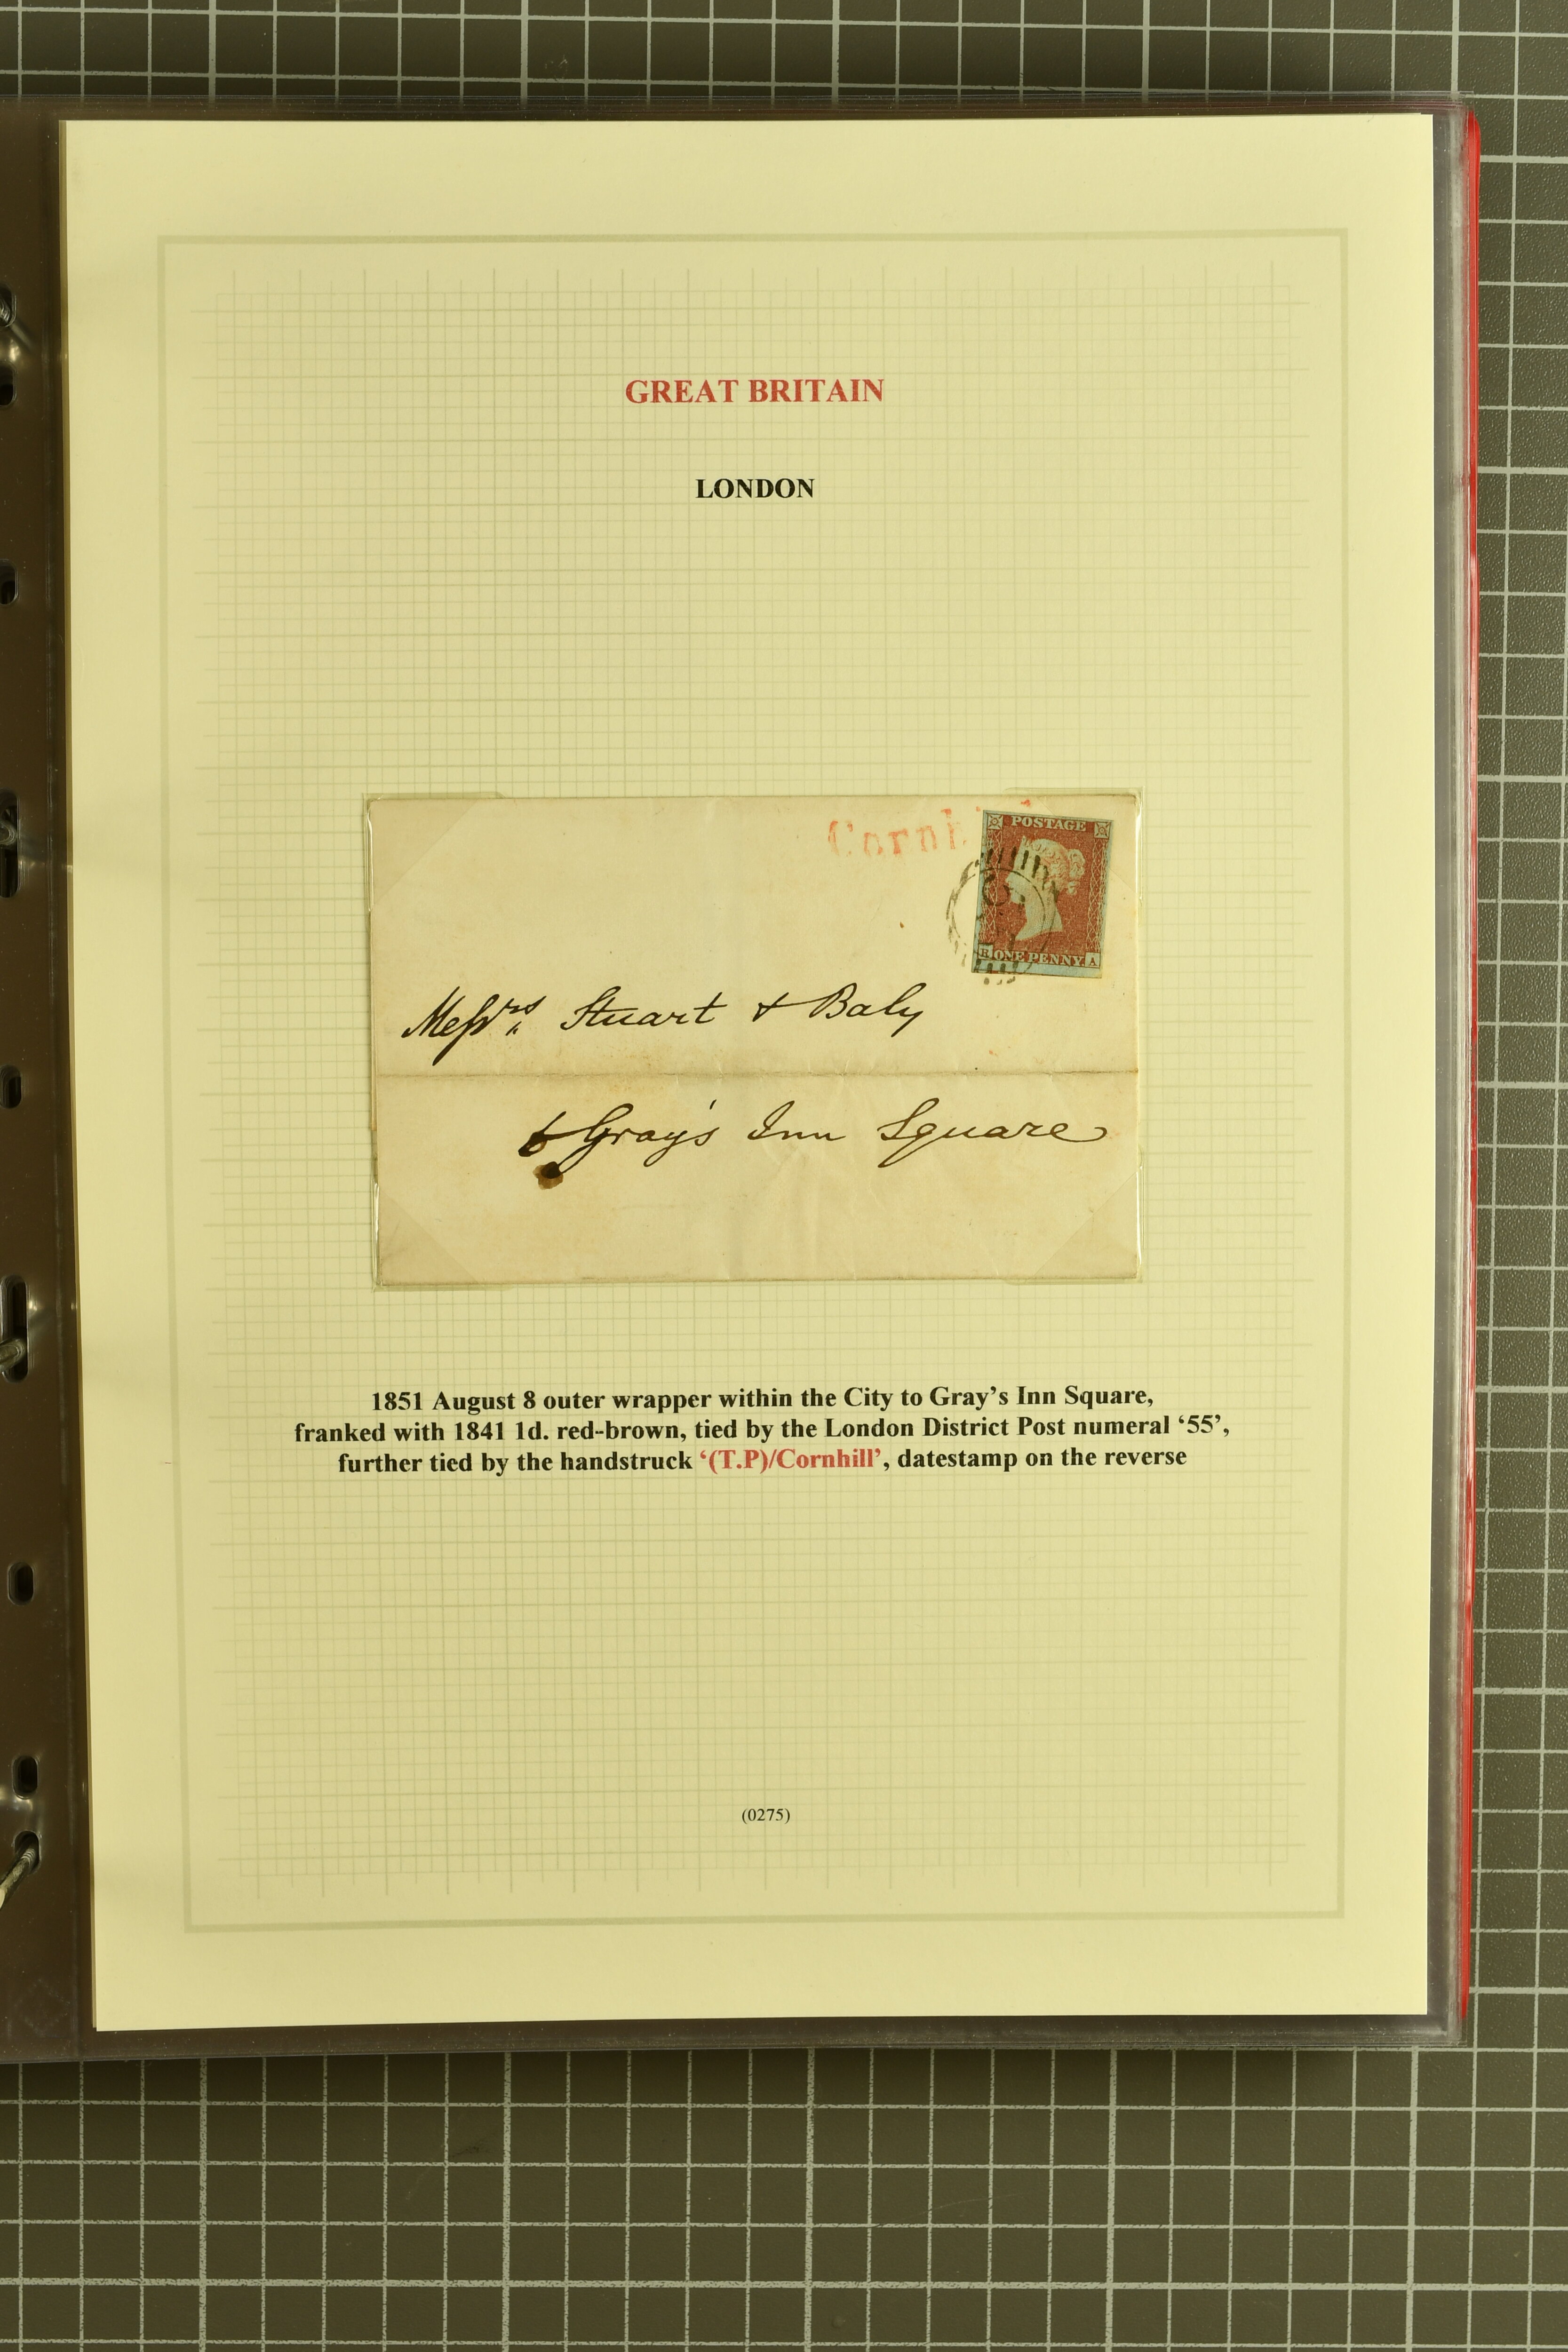 GREAT BRITAIN
LONDON
Cornh
POSTAGE
R ONE PENNY A
Messrs Stuart & Baly
6 Gray's Inn Square
1851 August 8 outer wrapper within the City to Gray’s Inn Square,
franked with 1841 1d. red-brown, tied by the London District Post numeral ‘55’,
further tied by the handstruck ‘(T.P)/Cornhill’, datestamp on the reverse
(0275)